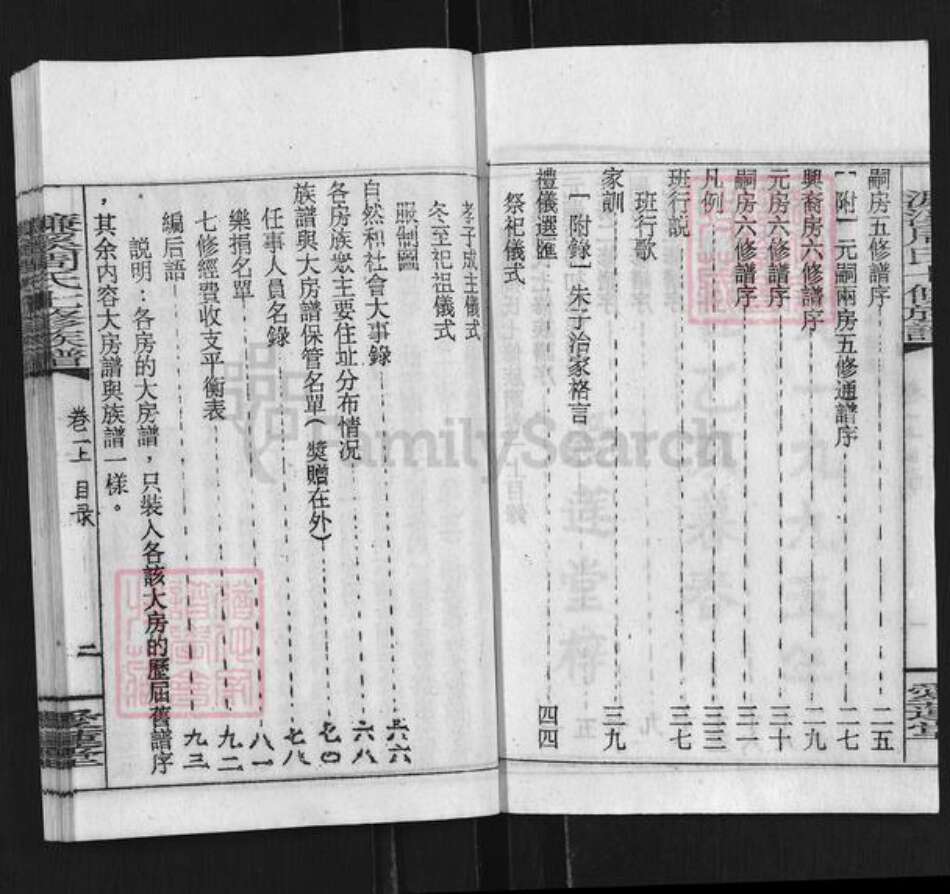 嗣房五修譜序 二五
[附] 元嗣兩房五修通譜序 二七
興裔房六修譜序 二九
元房六修譜序 三十
嗣房六修譜序 三一
凡例 三三
班行説 三七
班行歌
家訓 三九
[附錄] 朱子治家格言
禮儀選匯 四四
祭祀儀式
孝子成主儀式
冬至祀祖儀式
服制圖
自然和社會大事錄 六六
各房族眾主要住址分布情况 六八
族譜與大房譜保管名單(獎贈在外) 七〇
任事人員名錄 七八
樂捐名單 八一
七修經費收支平衡表 九二
編后語 九三
説明:各房的大房譜,只裝入各該大房的歷屆舊譜序
,其余内容大房譜與族譜一樣。
濂溪周氏七修族譜
卷一上 目录
二
愛蓮堂
FamilySearch